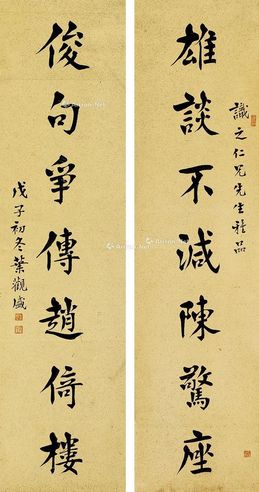 識之仁兄先生雅品
雄談不減陳驚座
俊句爭傳趙倚樓
戊子初冬葉觀盛